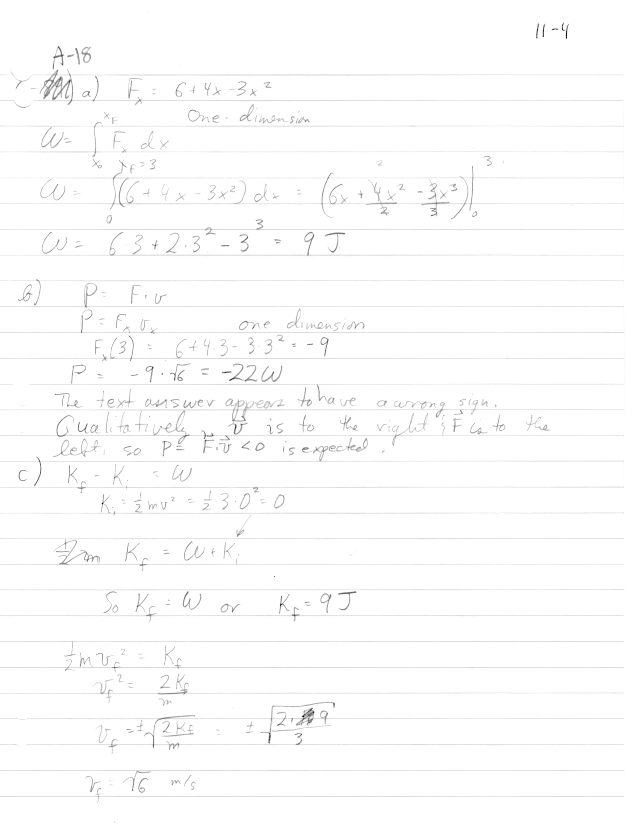 11-4
A-18
a) Fₓ = 6+4x-3x²
One-dimension
W = ∫ₓ₀^x_F Fₓ dx
W = ∫₀^x_f=3 (6+4x-3x²) dx = (6x + 4x²/2 - 3x³/3)|₀³
W = 6·3+2·3²-3³ = 9 J
b) P = F·v
P = Fₓ vₓ one dimension
Fₓ(3) = 6+4·3-3·3² = -9
P = -9·√6 = -22W
The text answer appears to have a wrong sign.
Qualitatively v⃗ is to the right; F⃗ is to the
left, so P = F⃗·v⃗ <0 is expected.
c) K_f - K_i = W
K_i = ½mv² = ½ 3·0² = 0
K_f = W + K_i
So K_f = W or K_f = 9 J
½mv_f² = K_f
v_f² = 2K_f/m
v_f = ±√(2K_f/m) = ±√(2·9/3)
v_f = √6 m/s